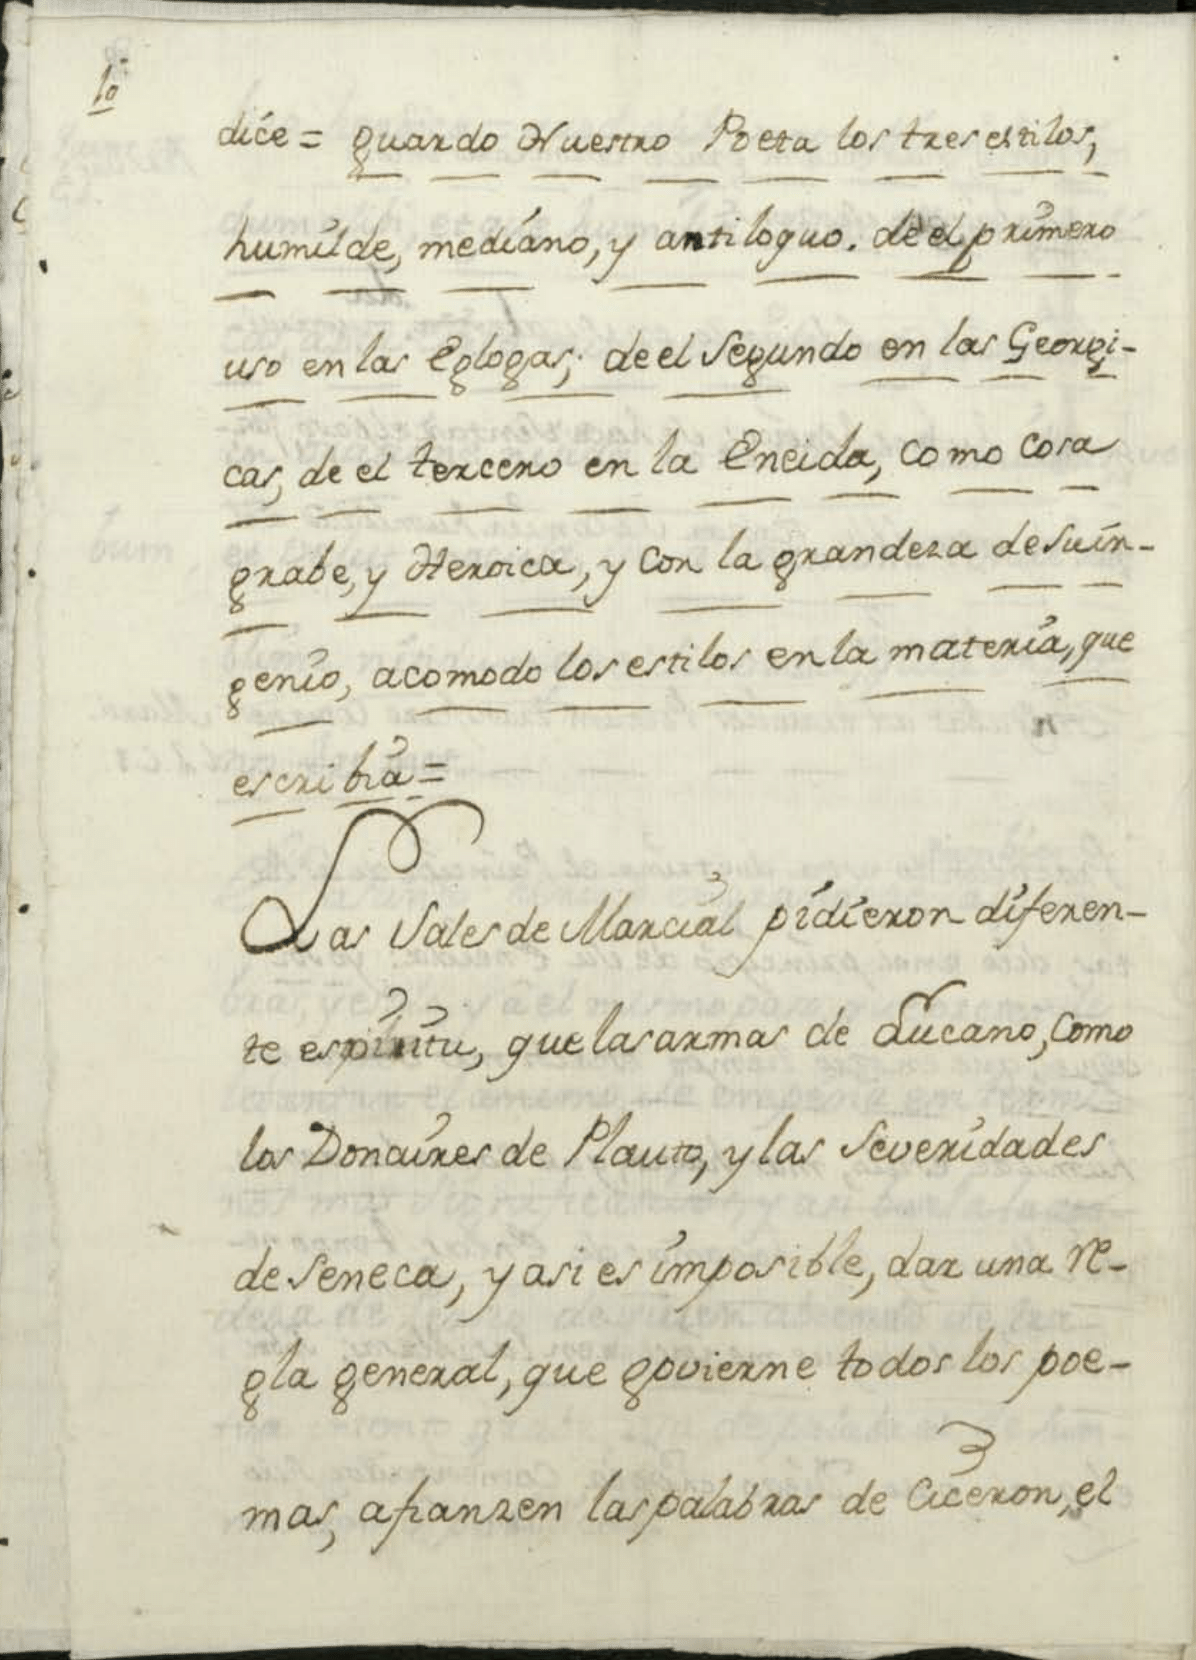 10
dice = guardo Nuestro Poeta los tres estilos,
humilde, mediano, y antiloguo. de el primero
uso en las Eglogas; de el Segundo en las Georgi-
cas, de el tercero en la Eneida, como cosa
grabe, y Heroica, y con la grandeza de su in-
genio, acomodo los estilos en la materia, que
escribia =
Las Sales de Marcial pidieron diferen-
te espiritu, que las armas de Lucano, como
los Donaires de Plauto, y las Severidades
de Seneca, y asi es imposible, dar una re-
gla general, que govierne todos los poe-
mas, afianzen las palabras de Ciceron, el